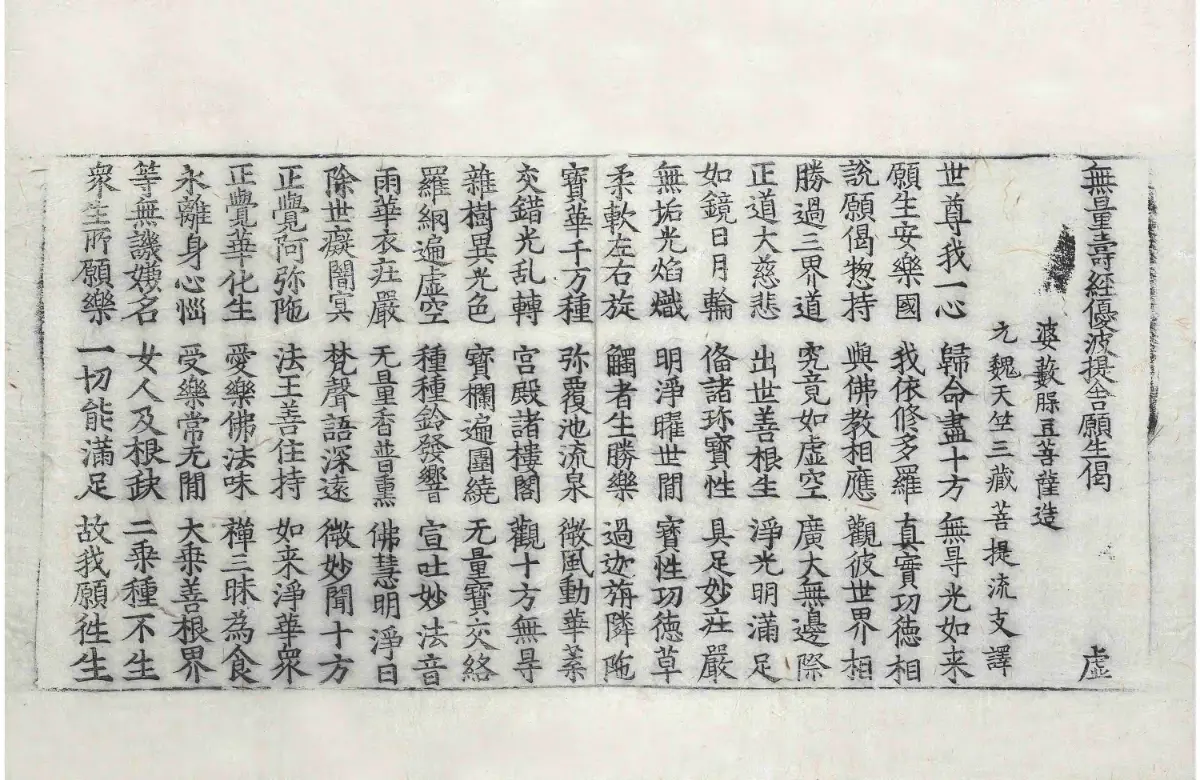 無量壽經優波提舍願生偈 虛
婆藪脲豆菩薩造
元魏天竺三藏菩提流支譯
世尊我一心 歸命盡十方 無导光如来
願生安樂國 我依修多羅 真實功德相
說願偈惣持 與佛教相應 觀彼世界相
勝過三界道 究竟如虛空 廣大無邊際
正道大慈悲 出世善根生 淨光明滿足
如鏡日月輪 俻諸珎寶性 具足妙庄嚴
無垢光焰熾 明淨曜世間 寶性功德草
柔軟左右旋 觸者生勝樂 過迦旃隣陁
寶華千万種 弥覆池流泉 微風動華葉
交錯光乱轉 宮殿諸樓閣 觀十方無导
雜樹異光色 寶欄遍圍繞 无量寶交絡
羅網遍虛空 種種鈴發響 宣吐妙法音
雨華衣庄嚴 无量香普熏 佛慧明淨日
除世癡闇冥 梵聲語深遠 微妙聞十方
正覺阿弥陁 法王善住持 如来淨華衆
正覺華化生 愛樂佛法味 禪三昧為食
永離身心惱 受樂常无間 大乗善根界
等無譏嫌名 女人及根缺 二乗種不生
衆生所願樂 一切能滿足 故我願徃生